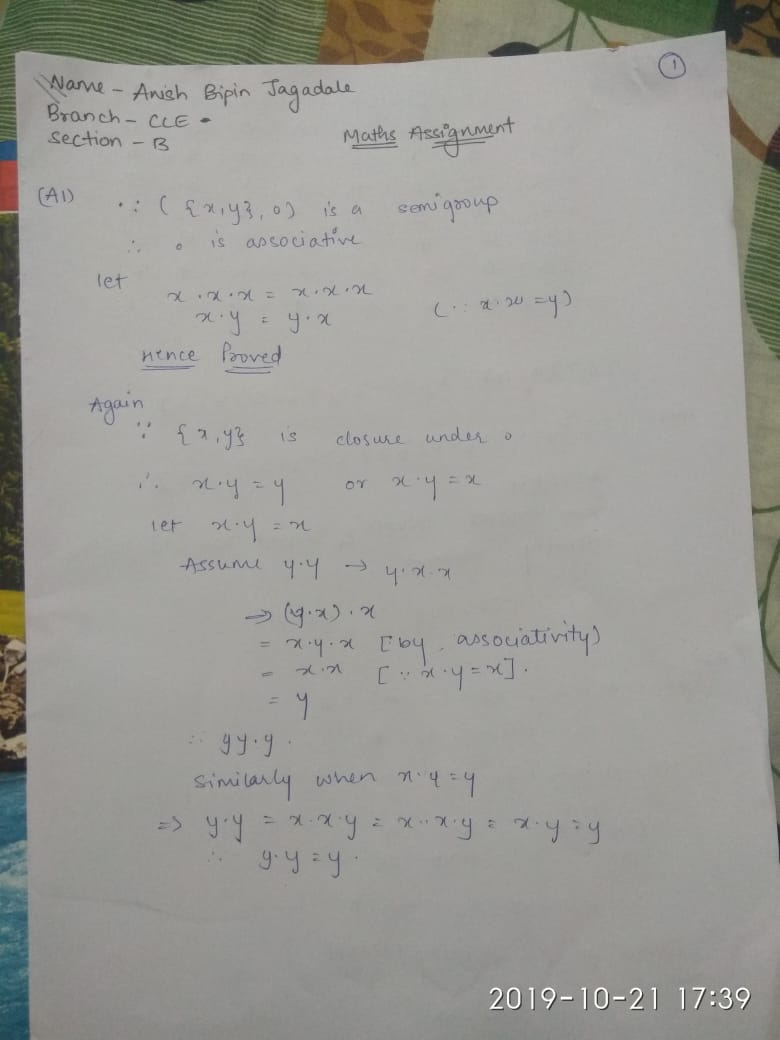 1
Name - Anish Bipin Jagadale
Branch - CCE
Section - B
Maths Assignment
(A1) ∵ ( {x,y}, o) is a semigroup
∴ o is associative
let
x . x . x = x . x . x
x . y = y . x (∵ x . x = y)
Hence Proved
Again
∵ {x,y} is closure under o
∴ x . y = y or x . y = x
let x . y = x
Assume y . y → y . x . x
⇒ (y . x) . x
= x . y . x [by associativity)
= x . x [∵ x . y = x] .
= y
∴ yy . y .
Similarly when x . y = y
=> y . y = x . x . y = x . x . y = x . y = y
∴ y . y = y .
2019-10-21 17:39